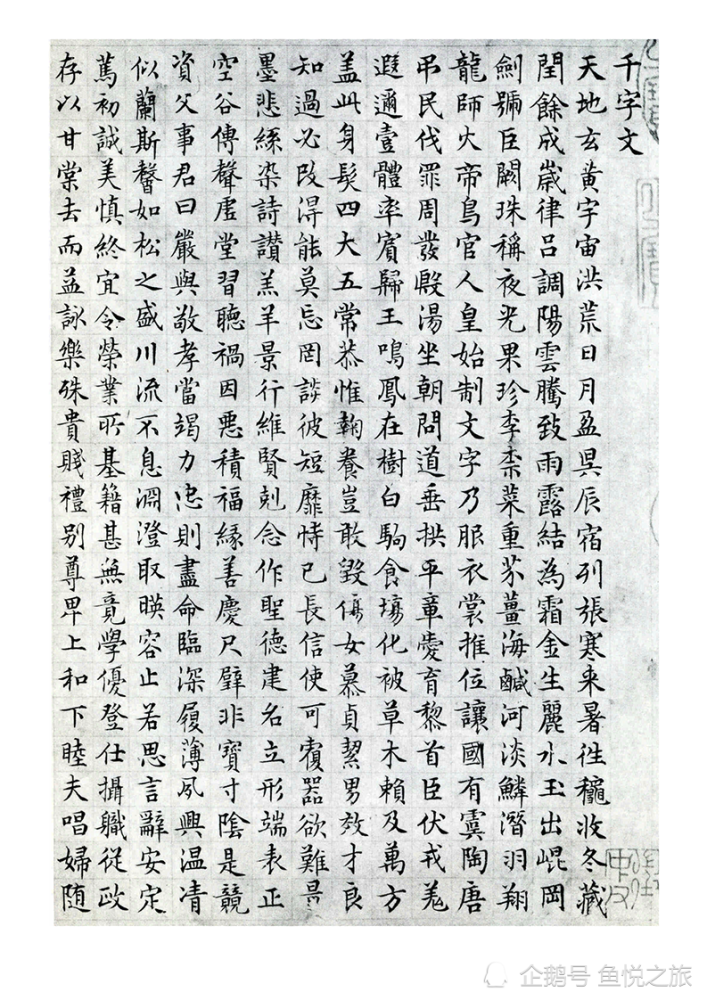 千字文
天地玄黃宇宙洪荒日月盈昃辰宿列張寒来暑徃穐收冬藏
閏餘成歲律呂調陽雲騰致雨露結為霜金生麗水玉出崐岡
劍號巨闕珠稱夜光果珍李柰菜重芥薑海鹹河淡鱗潛羽翔
龍師火帝鳥官人皇始制文字乃服衣裳推位讓國有虞陶唐
弔民伐罪周發殷湯坐朝問道垂拱平章愛育黎首臣伏戎羌
遐邇壹體率賓歸王鳴鳳在樹白駒食場化被草木賴及萬方
盖此身髮四大五常恭惟鞠養豈敢毀傷女慕貞絜男效才良
知過必改得能莫忘罔談彼短靡恃己長信使可覆器欲難量
墨悲絲染詩讃羔羊景行維賢剋念作聖德建名立形端表正
空谷傳聲虛堂習聽禍因惡積福緣善慶尺璧非寶寸陰是競
資父事君曰嚴與敬孝當竭力忠則盡命臨深履薄夙興温凊
似蘭斯馨如松之盛川流不息淵澄取暎容止若思言辭安定
篤初誠美慎終宜令榮業所基籍甚無竟學優登仕攝職從政
存以甘棠去而益詠樂殊貴賤禮別尊卑上和下睦夫唱婦随
企鹅号 鱼悦之旅